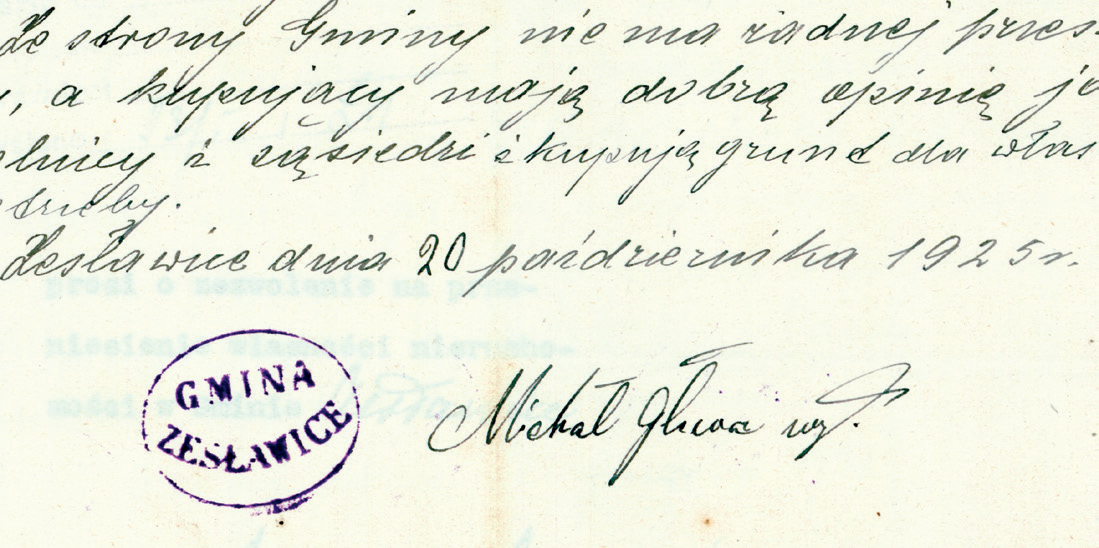 Ze strony Gminy nie ma żadnej przes
, a kupujący mają dobrą opinię ja
olnicy i sąsiedzi zkupują grunt dla włas
trzeby.
Zesławice dnia 20 października 1925 r.
prosi o zezwolenie na prze-
niesienie własności nierucho-
mości w Gminie
GMINA
ZESŁAWICE
Michał